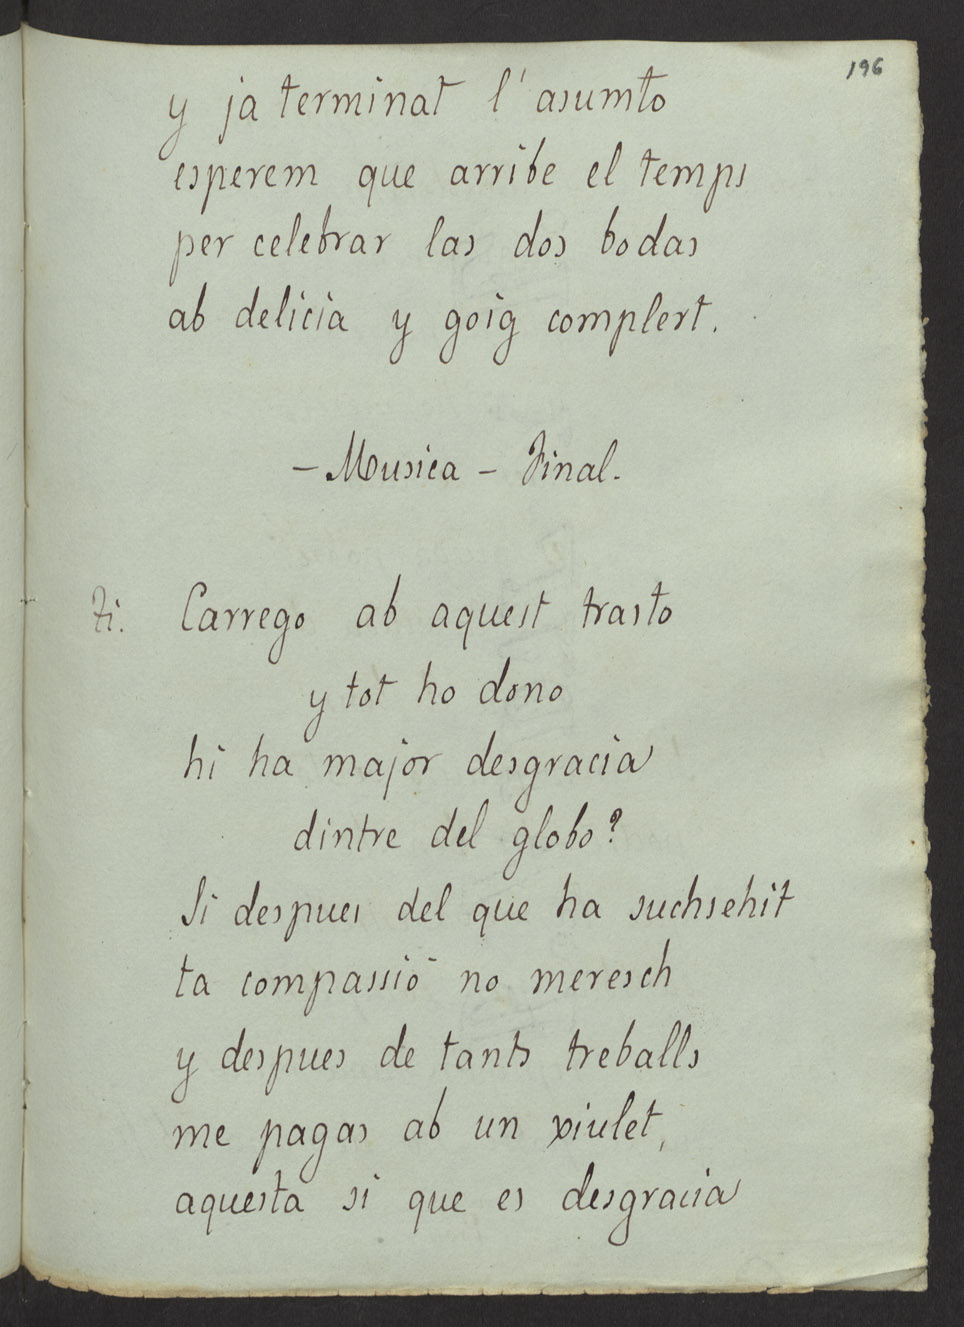 196
y ja terminat l'asumto
esperem que arribe el temps
per celebrar las dos bodas
ab delicia y goig complert.
- Musica - Final.
Ti. Carrego ab aquest trasto
y tot ho dono
hi ha major desgracia
dintre del globo?
Si despues del que ha suchsehit
ta compassió no meresch
y despues de tants treballs
me pagas ab un xiulet,
aquesta si que es desgracia